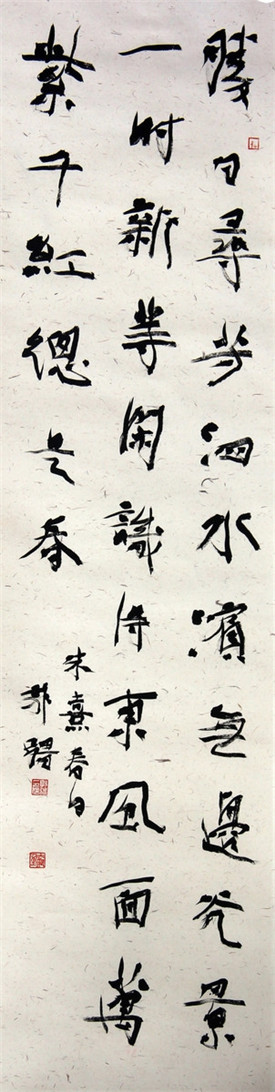 勝日尋芳泗水濱无邊光景
一時新等閑識得東風面萬
紫千紅總是春
朱熹春日